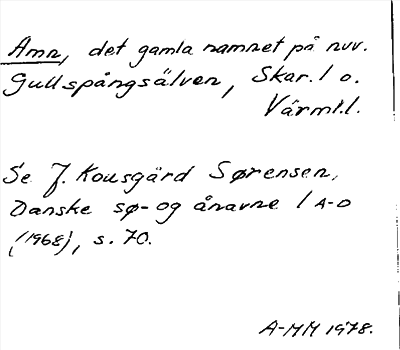 Amn, det gamla namnet på nuv.
Gullspångsälven, Skar. l o.
Värml. l.
Se J. Kousgård Sørensen,
Danske sø- og ånavne 1 A-D
(1968), s. 70.
A-MM 1978.